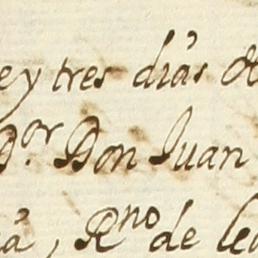 e y tres dias de
D.or Don Juan
a, Rno de le